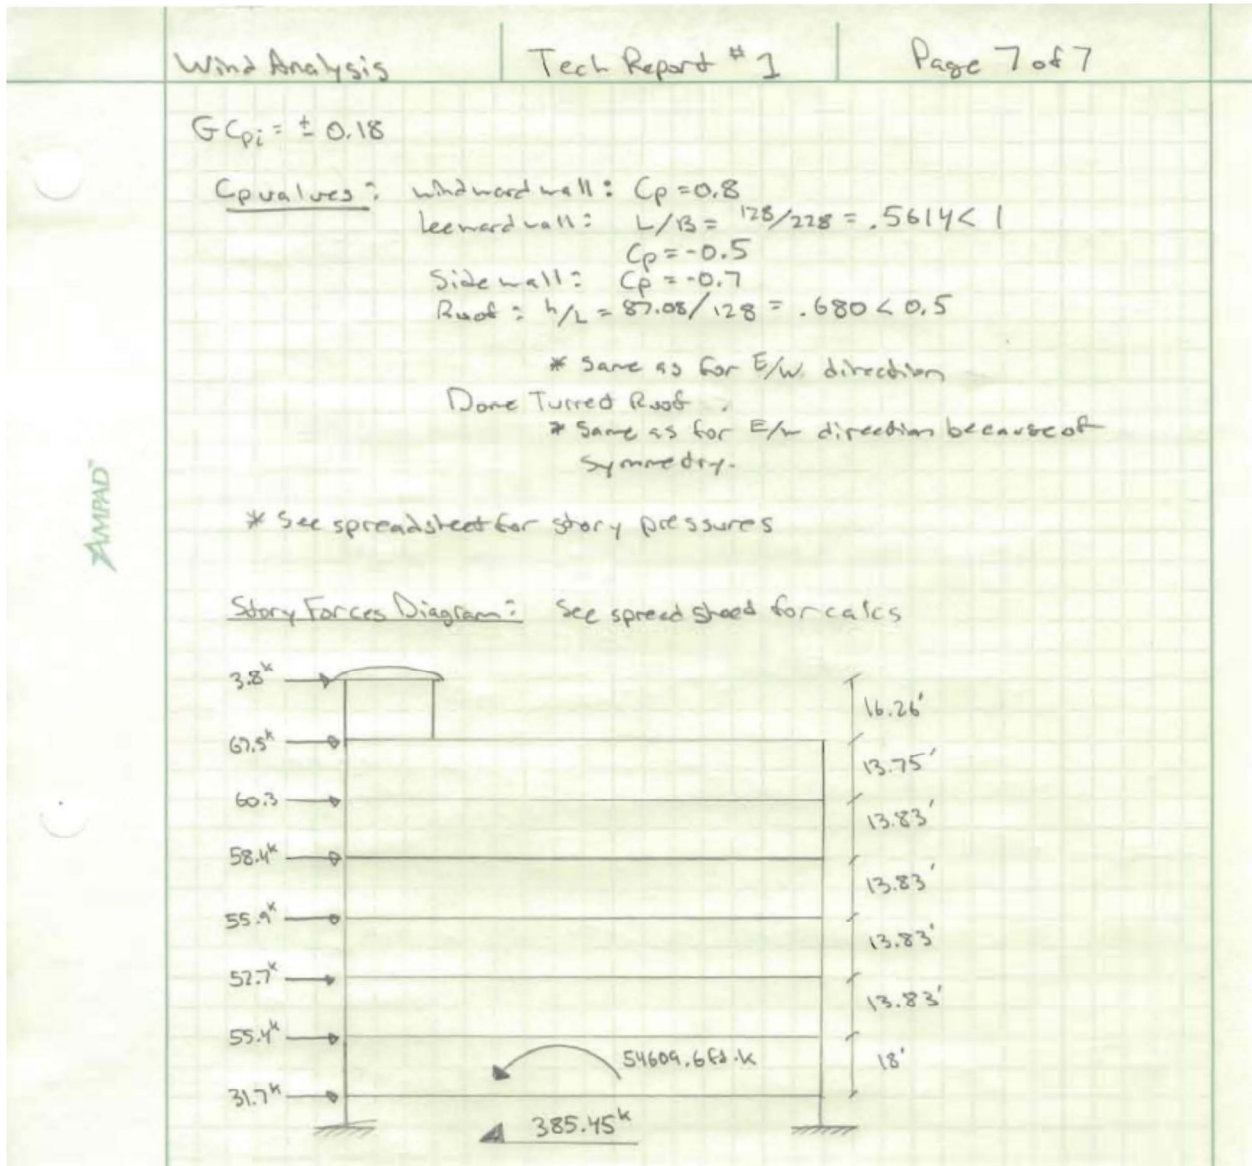 Wind Analysis Tech Report #1 Page 7 of 7
GCpi = ± 0.18
Cp values: windward wall: Cp = 0.8
Leeward wall: L/B = 128/228 = .5614 < 1
Cp = -0.5
Side wall: Cp = -0.7
Roof: h/L = 87.08/128 = .680 < 0.5
* Same as for E/W direction
Dome Turret Roof
* Same as for E/W direction because of
symmetry.
AMPAD™
* See spreadsheet for story pressures
Story Forces Diagram: See spreadsheet for calcs
3.8k
16.26'
67.5k
13.75'
60.3
13.83'
58.4k
13.83'
55.9k
13.83'
52.7k
13.83'
55.4k
54609.6 ft·k
18'
31.7k
385.45k